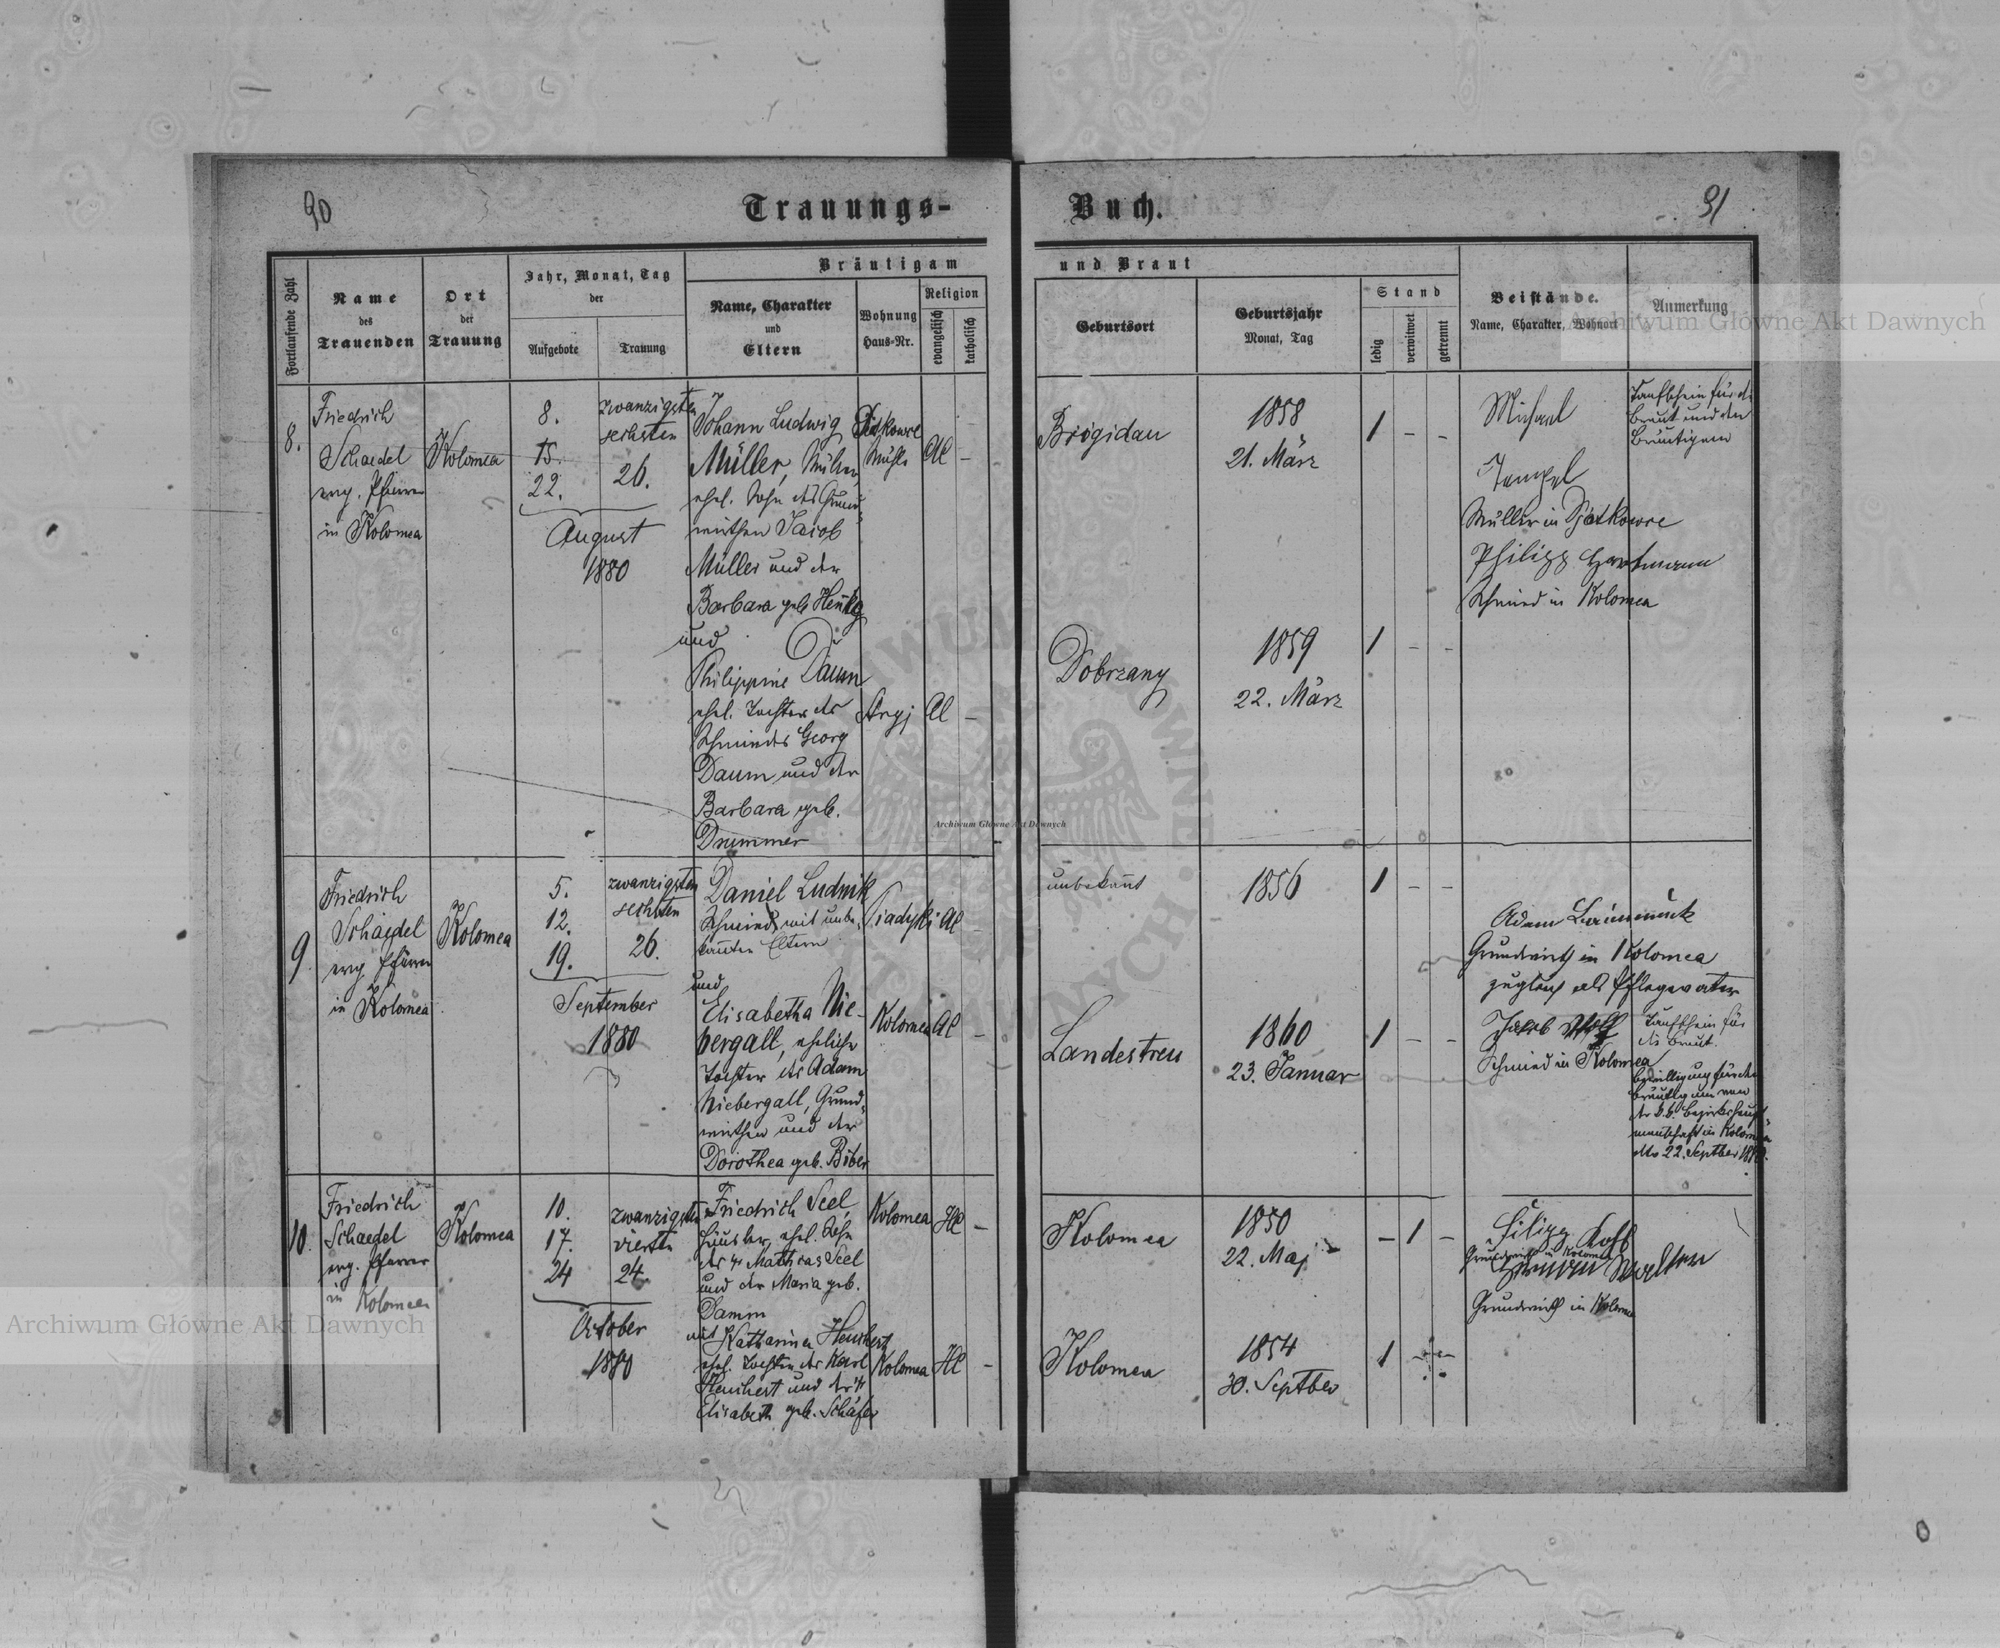 90
Trauungs-
Buch.
91
Fortlaufende Zahl
Name
des
Trauenden
Ort
der
Trauung
Jahr, Monat, Tag
der
Aufgebote
Trauung
Bräutigam
Name, Charakter
und
Eltern
Wohnung
Haus-Nr.
Religion
evangelisch
katholisch
und Braut
Geburtsort
Geburtsjahr
Monat, Tag
Stand
ledig
verwitwet
getrennt
Beistände.
Name, Charakter, Wohnort
Anmerkung
8.
Friedrich
Schaedel
evg. Pfarrer
in Kolomea
Kolomea
8.
15.
22.
zwanzigsten
sechsten
26.
August
1880
Johann Ludwig
Müller, Müller,
ehel. Sohn des Grund-
wirthen Jacob
Müller und der
Barbara geb.
und
Philippine Daum
ehel. Tochter des
Schmiedes Georg
Daum und der
Barbara geb.
Drummer
Mühle
AC
–
AC
–
Brigidau
1858
21. März
1 – –
Dobrzany
1859
22. März
1 – –
Michael
Tempel
Müller in Djatkowce
Philipp Hartmann
Schmied in Kolomea
Taufschein für die
Braut und den
Bräutigam
9.
Friedrich
Schaedel
evg. Pfarrer
in Kolomea
Kolomea
5.
12.
19.
zwanzigsten
sechsten
26.
September
1880
Daniel Ludwik
Schmied mit unbe-
kannten Eltern
und
Elisabetha Nie-
bergall, eheliche
Tochter des Adam
Niebergall, Grund-
wirthen und der
Dorothea geb. Biber
Piadyki
AC
–
Kolomea
AC
–
unbekannt
1856
1 – –
Landestreu
1860
23. Januar
1 – –
Adam
Grundwirth in Kolomea
zugleich als Pflegevater
Jakob Wolf
Schmied in Kolomea
Taufschein für
die Braut.
Bewilligung für den
Bräutigam von
der k.k. Bezirkshaupt-
mannschaft in Kolomea
dto 22. Septber 1880.
10.
Friedrich
Schaedel
evg. Pfarrer
in Kolomea
Kolomea
10.
17.
24
zwanzigsten
vierten
24.
October
1880
Friedrich Seel,
Häusler, ehel. Sohn
des Mathias Seel
und der Maria geb.
Damm
mit Katharina Henchert
ehel. Tochter des Karl
Henchert und der
Elisabeth geb. Schäfer
Kolomea
HC
–
Kolomea
HC
–
Kolomea
1850
22. Maj
– 1 –
Kolomea
1854
30. Septber
1 – –
Filipp Kolb
Grundwirth in Kolomea
Walter
Grundwirth in Kolomea
Archiwum Główne Akt Dawnych
Archiwum Główne Akt Dawnych
Archiwum Główne Akt Dawnych